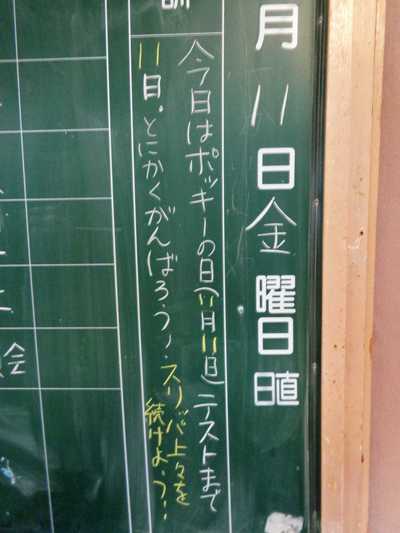 月11日金曜日
日直
今日はポッキーの日(11月11日)テストまで
11日。とにかくがんばろう!!スリッパ上々を
続けよう!
会